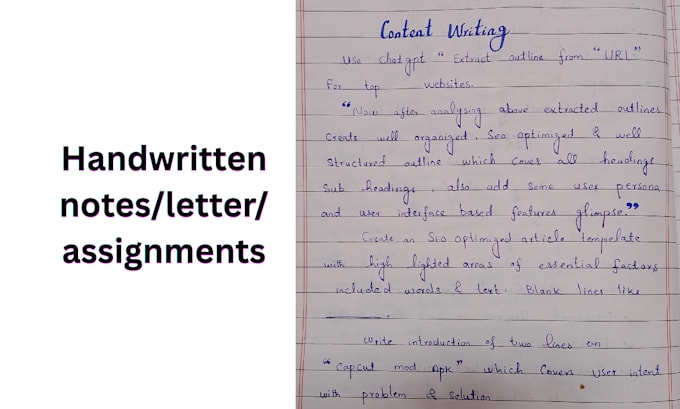 Handwritten
notes/letter/
assignments
Content Writing
Use chatgpt " Extract outline from "URL"
For top websites.
"Now after analysing above extracted outlines
Create well organized, Seo optimized & well
Structured outline which coves all headings
Sub headings, also add some user persona
and user interface based features glimpse."
Create an Seo optimized article tempelate
with high lighted areas of essential factors
included words & text. Blank lines like
________.
write introduction of two lines on
"Capcut mod Apk" which Covers User intent
with problem & solution